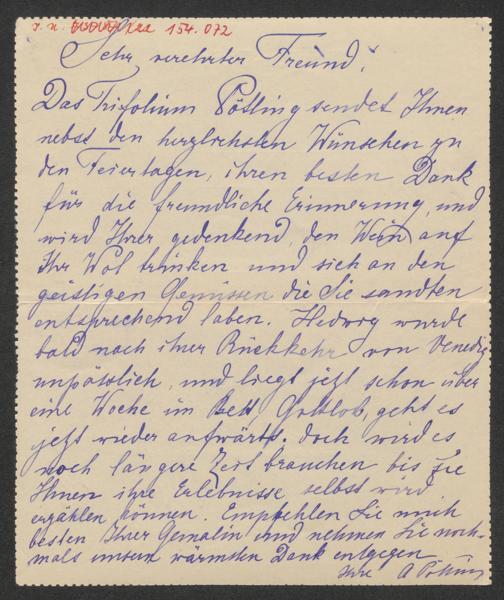 154.072
Sehr verehrter Freund!
Das Trifolium Pötting sendet Ihnen
nebst den herzlichsten Wünschen zu
den Feiertagen, ihren besten Dank
für die freundliche Erinnerung, und
wird Ihrer gedenkend, den Wein auf
Ihr Wol trinken und sich an den
geistigen Genüssen die Sie sandten
entsprechend laben. Hedwig wurde
bald nach ihrer Rückkehr von Venedig
unpässlich, und liegt jetzt schon über
eine Woche im Bett. Gottlob, geht es
jetzt wieder aufwärts. doch wird es
noch längere Zeit brauchen bis sie
Ihnen ihre Erlebnisse selbst wird
erzählen können. Empfehlen Sie mich
besten Ihrer Gemalin und nehmen Sie noch-
mals unsern wärmsten Dank entgegen
Ihre A Pötting